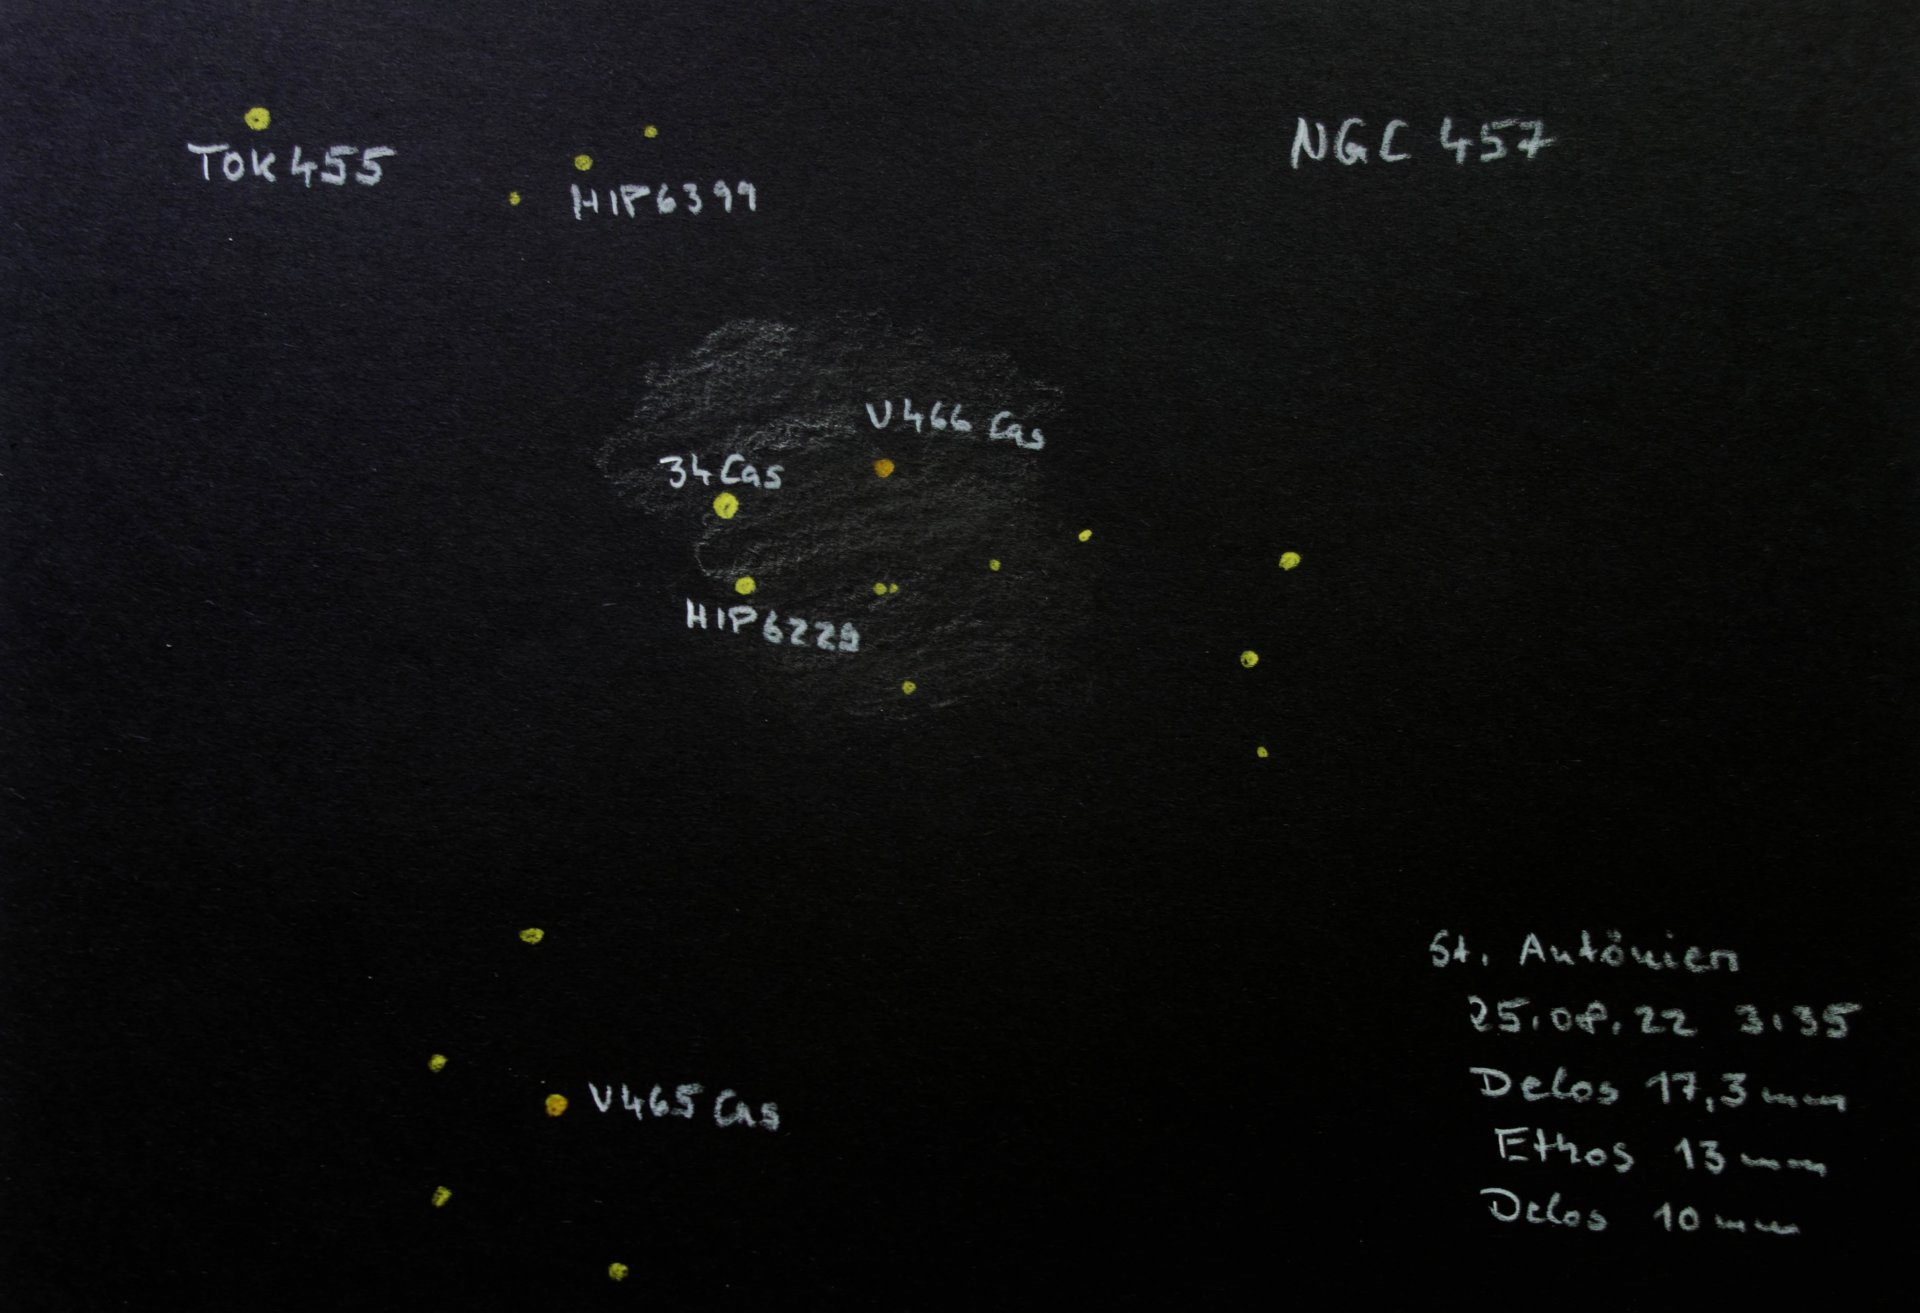 NGC 457
TOK 455
HIP 6399
V466 Cas
34 Cas
HIP 6229
V465 Cas
St. Antönien
25.08.22 3:35
Delos 17,3mm
Ethos 13mm
Delos 10mm